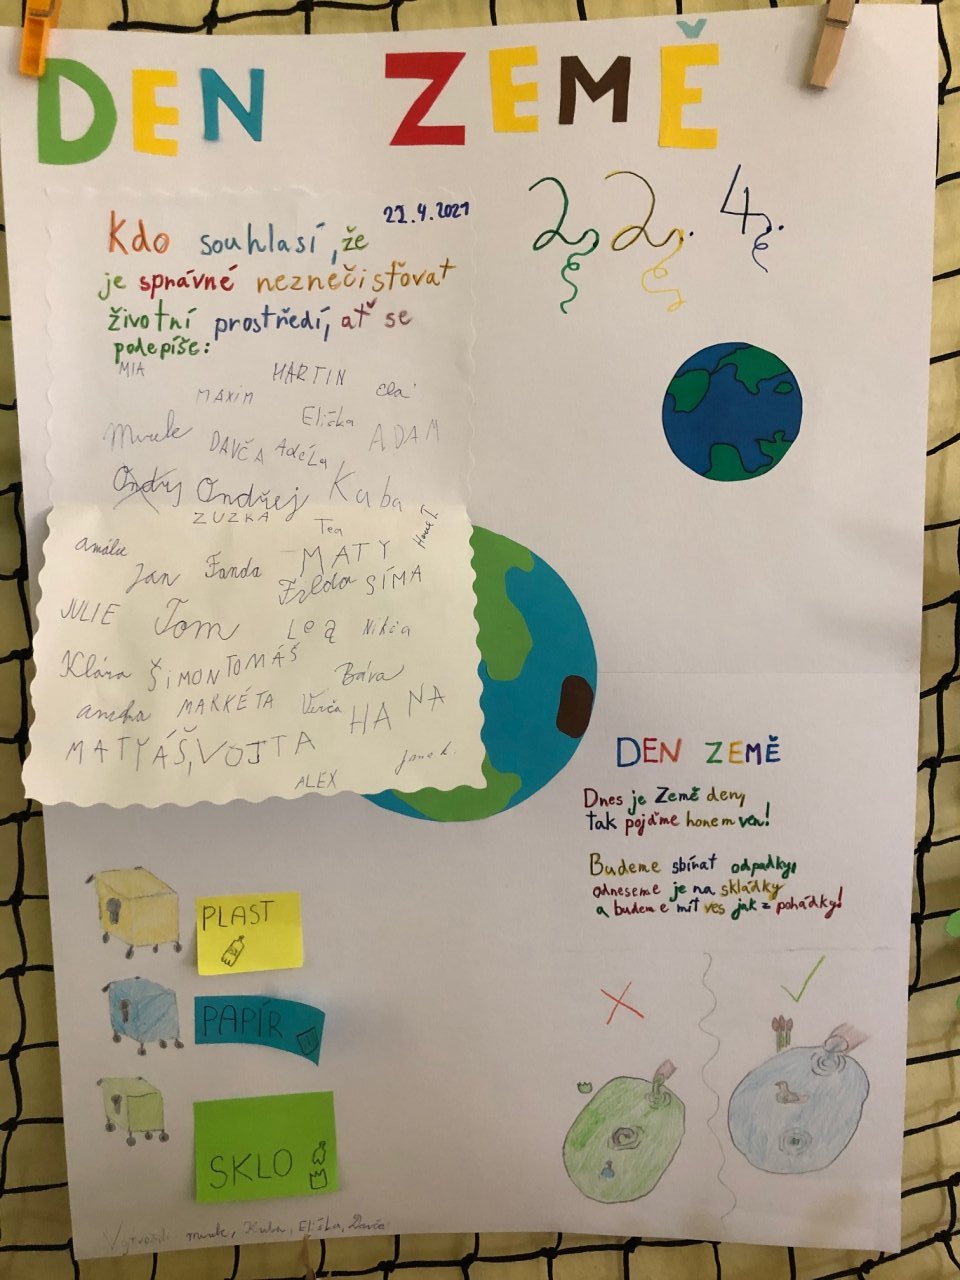 DEN ZEMĚ
22. 4.
22.4.2021
Kdo souhlasí, že
je správné neznečisťovat
životní prostředí, ať se
podepíše:
MIA
MARTIN
MAXIM
Ela
Eliška
DAVČA Adéla ADAM
Ondřej Kuba
ZUZKA
Tea
MATY
Jan Fanda
SÍMA
JULIE Tom Lea
Klára ŠIMON TOMÁŠ
Bára
MARKÉTA Verča HANA
MATYÁŠ, VOJTA
ALEX
DEN ZEMĚ
Dnes je Země den,
tak pojďme honem ven!
Budeme sbírat odpadky,
odneseme je na skládky
a budeme mít ves jak z pohádky!
PLAST
PAPÍR
SKLO
Vytvořili Kuba, Eliška, Davča